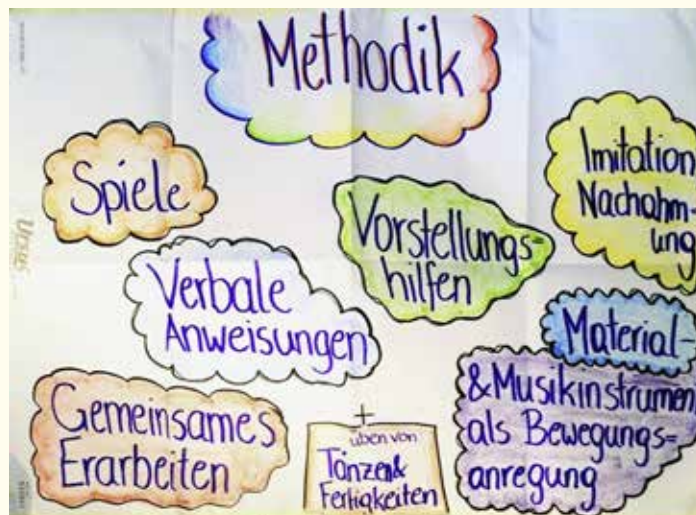 Methodik
Spiele
Imitation
Nachahm-
ung
Vorstellungs-
hilfen
Verbale
Anweisungen
Material-
& Musikinstrumen
als Bewegungs=
anregung
Gemeinsames
Erarbeiten
+
üben von
Tänzen &
Fertigkeiten